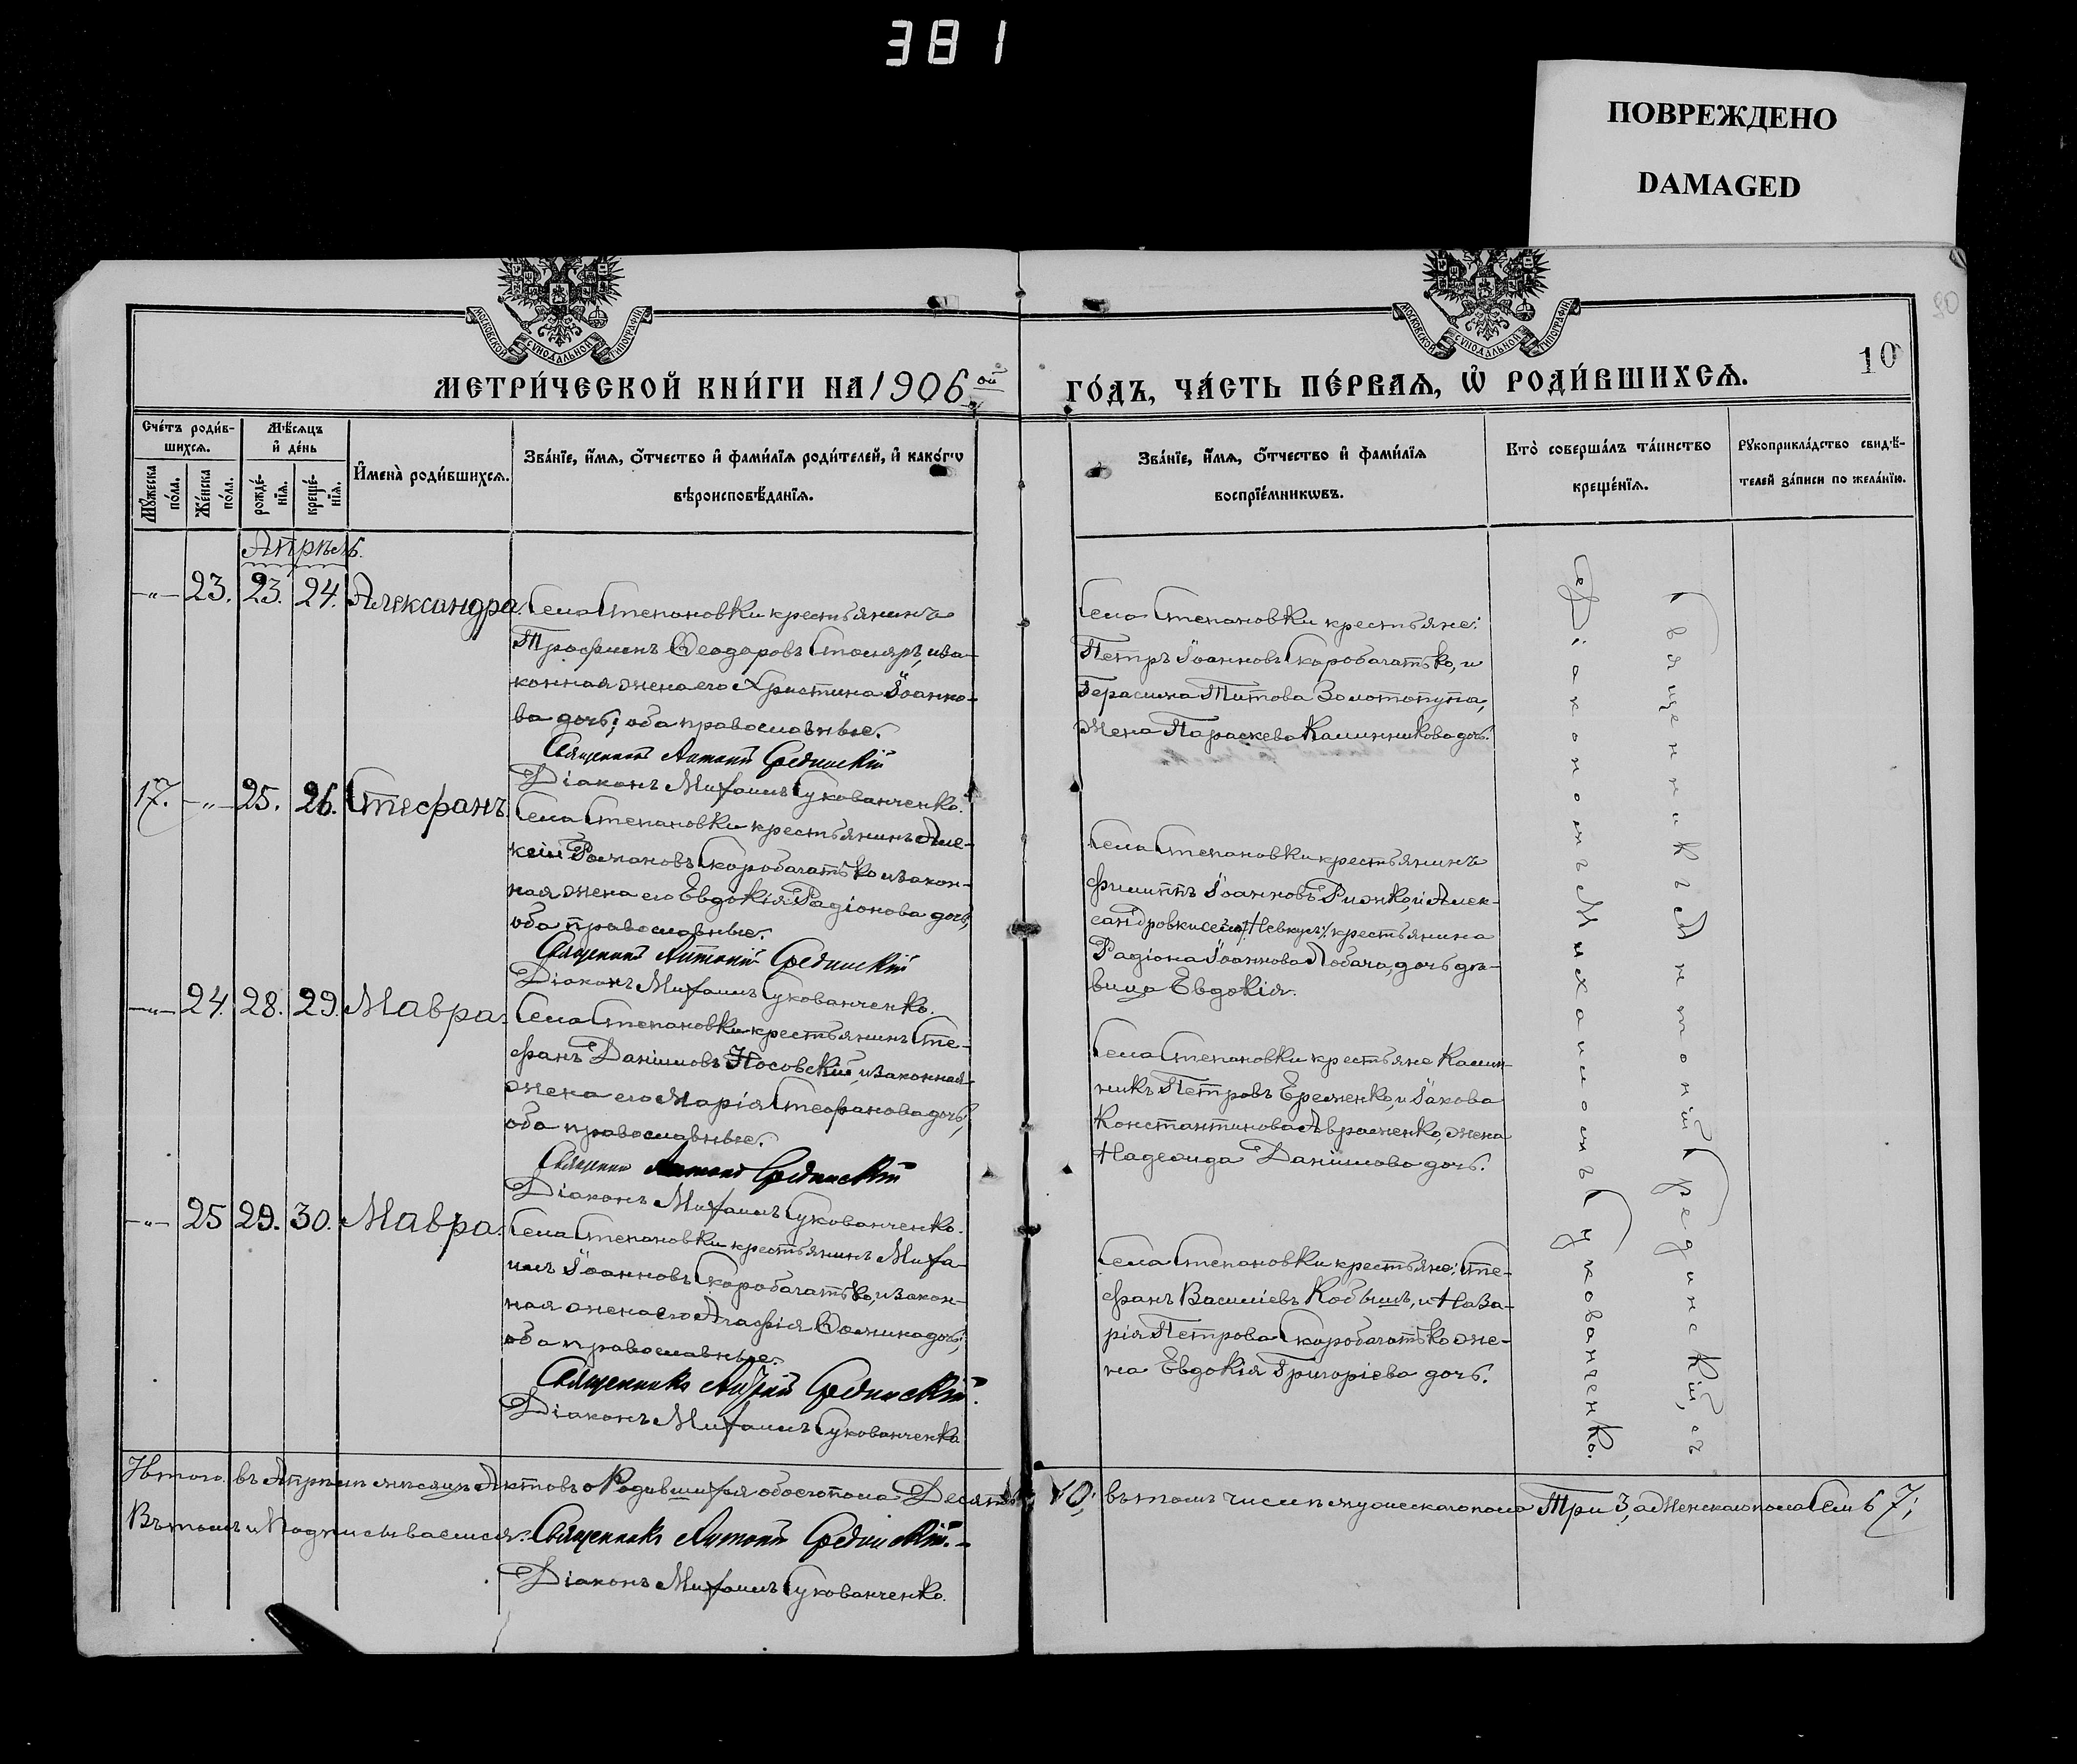 381
ПОВРЕЖДЕНО
DAMAGED
МОСКОВСКОЙ СѴНОДАЛЬНОЙ ТИПОГРАФІИ
МОСКОВСКОЙ СѴНОДАЛЬНОЙ ТИПОГРАФІИ
80
10
МЕТРИ́ЧЕСКОЙ КНИ́ГИ НА 1906ой
ГО́ДЪ, ЧА́СТЬ ПЕ́РВАѦ, Ѡ РОДИ́ВШИХСѦ.
Сче́тъ роди́в-
шихсѧ.
Мꙋ́жеска
по́ла.
Же́нска
по́ла.
Мѣ́сѧцъ
и҆ де́нь
рожде́-
нїѧ.
креще́-
нїѧ.
И҆мена̀ роди́вшихсѧ.
Зва́нїе, и҆́мѧ, о҆́тчество и҆ фами́лїѧ роди́телей, и҆ како́гѡ
вѣроисповѣ́данїѧ.
Зва́нїе, и҆́мѧ, о҆́тчество и҆ фами́лїѧ
воспрїе́мникѡвъ.
Кто̀ соверша́лъ та́инство
креще́нїѧ.
Рꙋкоприкла́дство свидѣ́-
телей за́писи по жела́нїю.
Апрѣль.
-"- 23. 23. 24. Александра.
Села Степановки крестьянинъ
Трофимъ Ѳеодоровъ Столяръ, и за-
конная жена его Христина Іоанно-
ва дочь; оба православные.
Священникъ Антоній Срединскій
Діаконъ Михаилъ Сукованченко.
Села Степановки крестьяне:
Петръ Іоанновъ Скоробагатько, и
Герасима Титова Золотопупа,
жена Параскева Калинникова дочь.
17. -"- 25. 26. Стефанъ.
Села Степановки крестьянинъ Але-
ксій Романовъ Скоробагатько и закон-
ная жена его Евдокія Радіонова дочь,
оба православные.
Священникъ Антоній Срединскій
Діаконъ Михаилъ Сукованченко.
Села Степановки крестьянинъ
Филиппъ Іоанновъ Рижко, и Алек-
сандровки села крестьянина
Радіона Іоаннова Лобача, дочь дѣ-
вица Евдокія.
-"- 24. 28. 29. Мавра.
Села Степановки крестьянинъ Сте-
фанъ Даніиловъ Носовскій, и законная
жена его Марія Стефанова дочь;
оба православные.
Священникъ Антоній Срединскій
Діаконъ Михаилъ Сукованченко.
Села Степановки крестьяне Калин-
никъ Петровъ Еременко, и Іакова
Константинова Авраменко, жена
Надежда Даніилова дочь.
-"- 25 29. 30. Мавра.
Села Степановки крестьянинъ Миха-
илъ Іоанновъ Скоробагатько, и закон-
ная жена его Агафія Ѳомина дочь;
оба православные.
Священникъ Антоній Срединскій.
Діаконъ Михаилъ Сукованченко
Села Степановки крестьяне: Сте-
фанъ Василіевъ Кобышъ, и Наза-
рія Петрова Скоробагатько же-
на Евдокія Григоріева дочь.
Священникъ Антоній Срединскій, съ
Діакономъ Михаиломъ Сукованченко.
Итого въ Апрѣлѣ мѣсяцѣ Актовъ о Родившихся обоего пола Десять 10; въ томъ числѣ мужескаго пола Три 3, а женскаго пола Семь 7;
Въ томъ и Подписываемся: Священникъ Антоній Срединскій.-
Діаконъ Михаилъ Сукованченко.